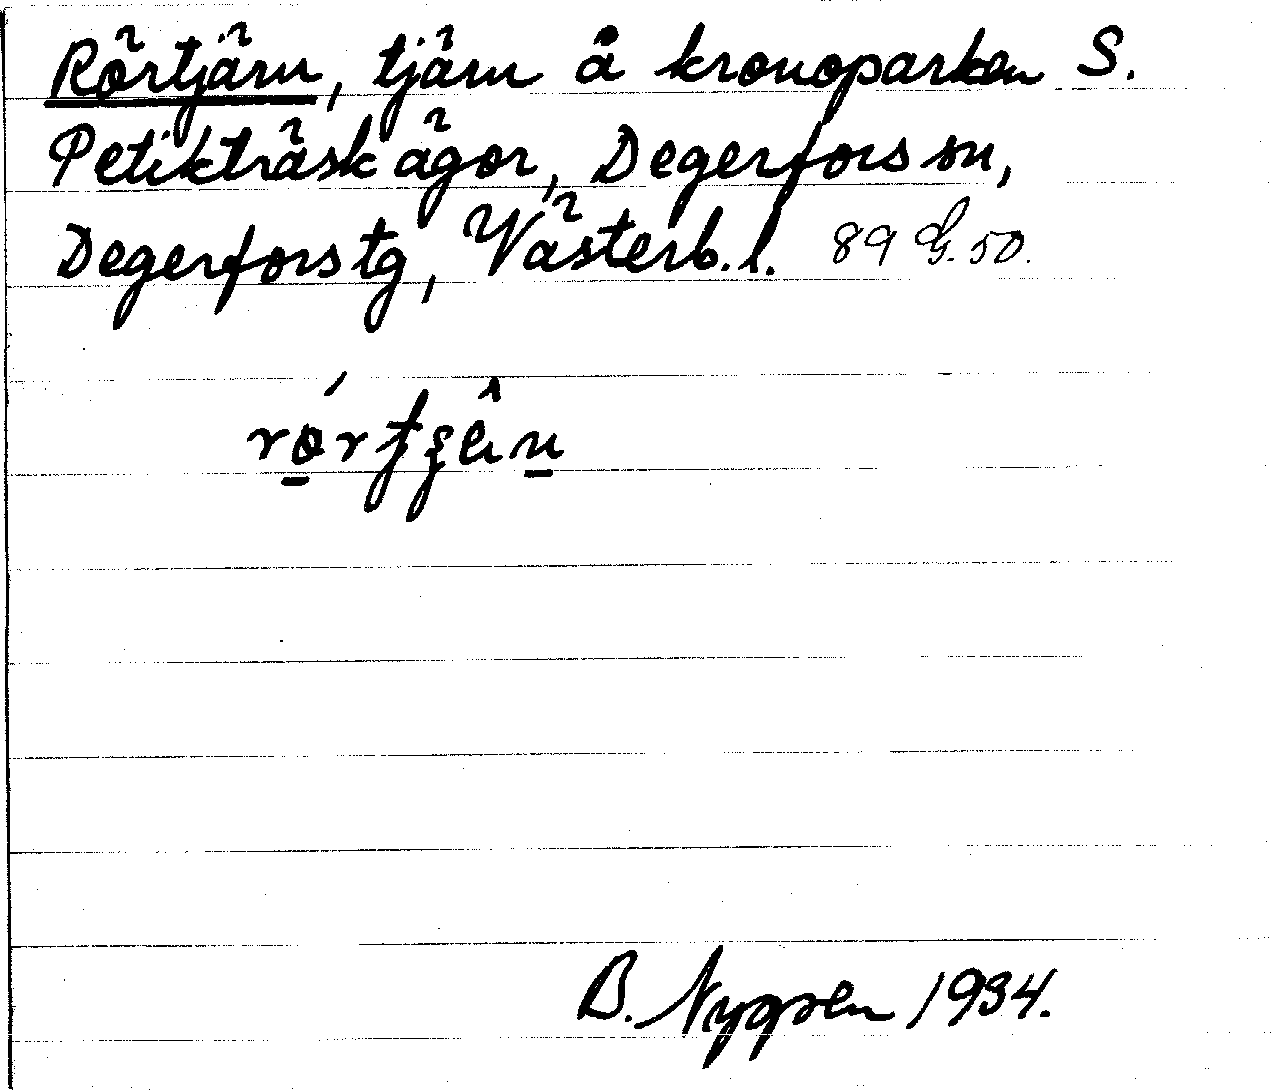 Rörtjärn, tjärn å kronoparken S.
Petikträsk ägor, Degerfors sn,
Degerfors tg, Västerb. l. 89 G. 50.
B. Nygren 1934.